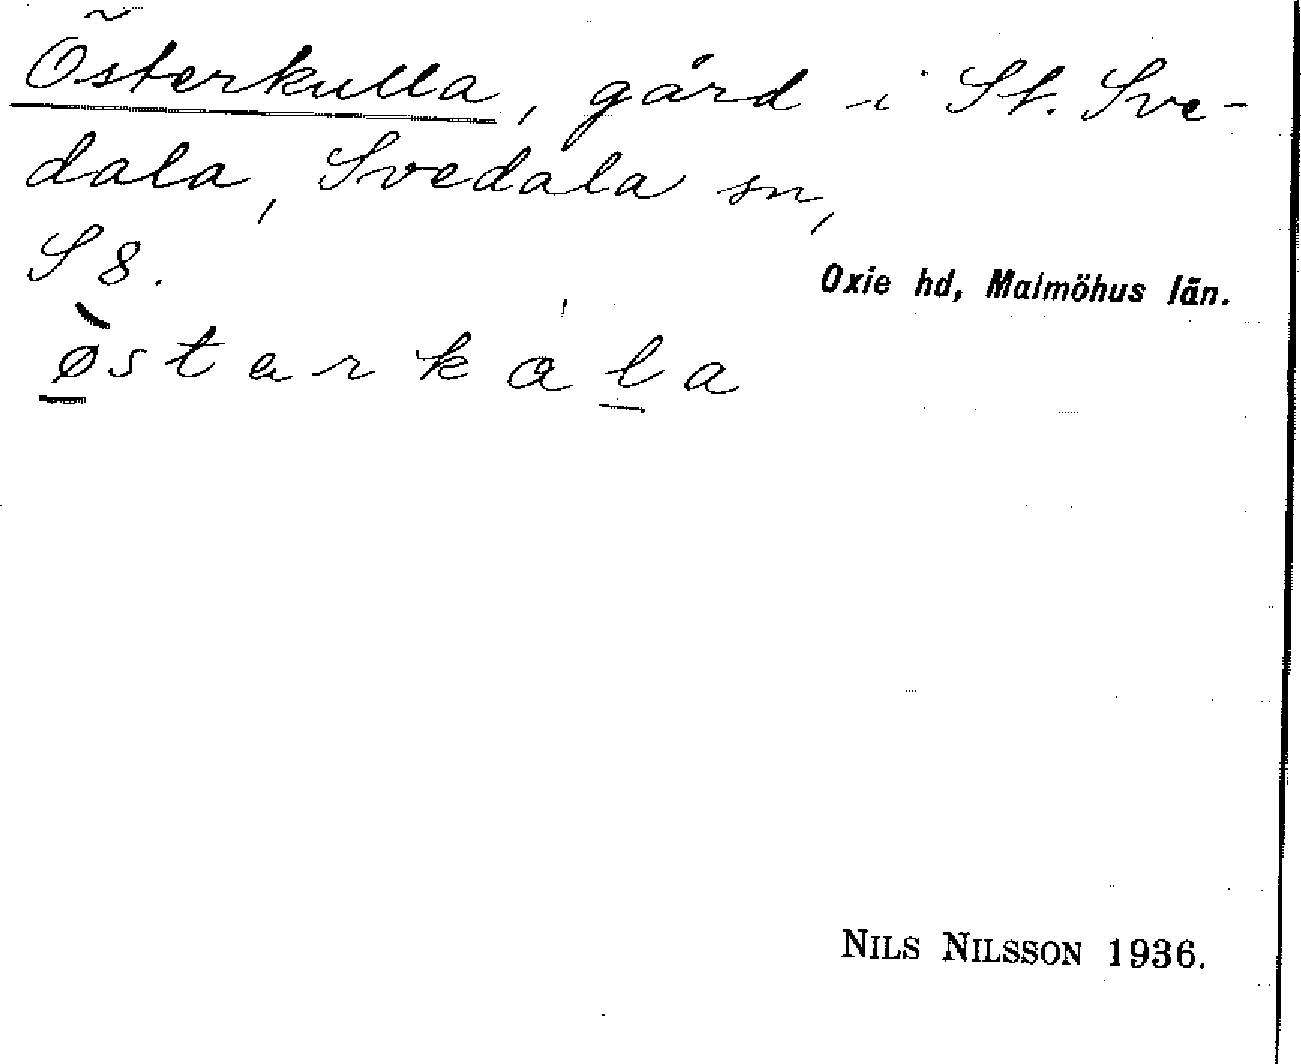 Österkulla, gård i St. Sve-
dala, Svedala sn,
S 8.
Oxie hd, Malmöhus län.
ø̀starkála
NILS NILSSON 1936.